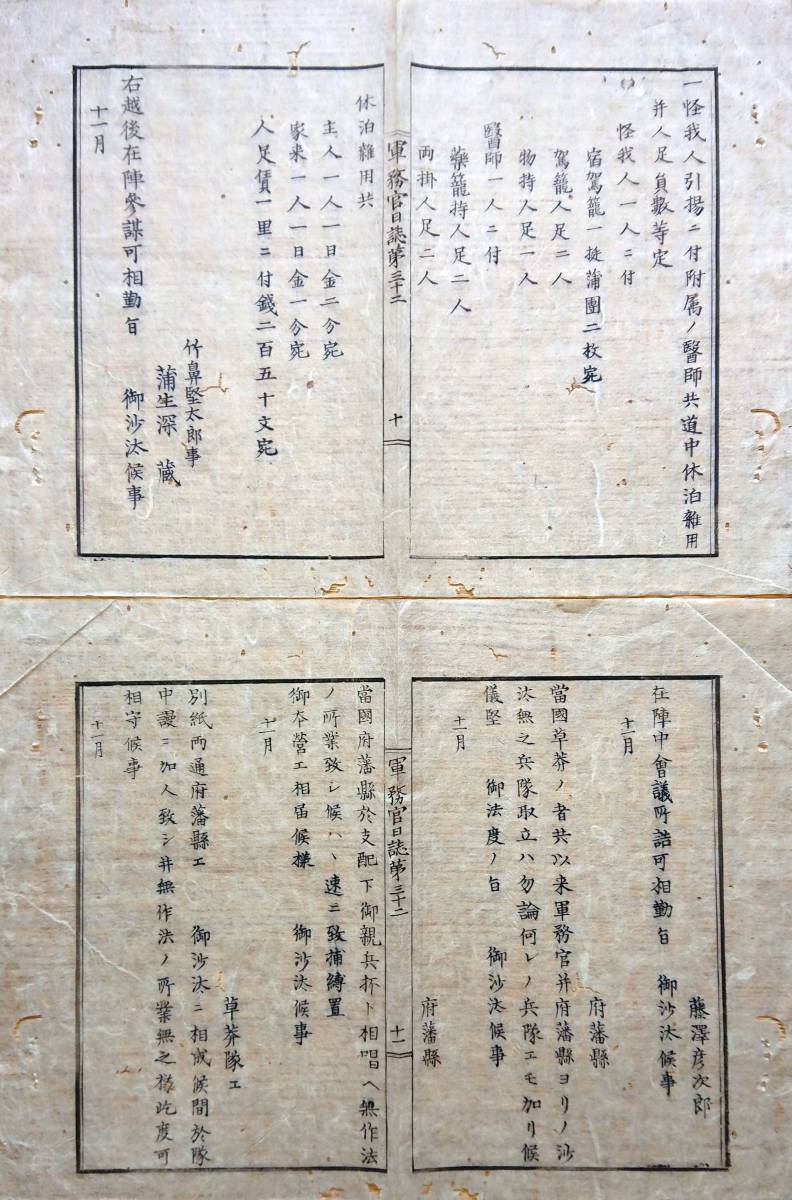 一怪我人引揚ニ付附属ノ醫師共道中休泊雜用
并人足員數等定
怪我人一人ニ付
宿駕籠一挺蒲團二枚宛
駕籠人足二人
物持人足一人
醫師一人ニ付
藥籠持人足二人
両掛人足二人
軍務官日誌第三十二
十
休泊雜用共
主人一人一日金二分宛
家来一人一日金一分宛
人足賃一里ニ付錢二百五十文宛
竹鼻堅太郎事
蒲生深藏
右越後在陣參謀可相勤旨 御沙汰候事
十一月
藤澤彦次郎
在陣中會議所詰可相勤旨 御沙汰候事
十一月
府藩縣
當國草莽ノ者共以来軍務官并府藩縣ヨリノ沙
汰無之兵隊取立ハ勿論何レノ兵隊エモ加リ候
儀堅 御法度ノ旨 御沙汰候事
十一月
府藩縣
軍務官日誌第三十二
十一
當國府藩縣於支配下御親兵抔ト相唱ヘ無作法
ノ所業致シ候ハヽ速ニ致捕縛置
御本營エ相届候様 御沙汰候事
十一月
草莽隊エ
別紙両通府藩縣エ 御沙汰ニ相成候間於隊
中謾ニ加人致シ并無作法ノ所業無之様屹度可
相守候事
十一月